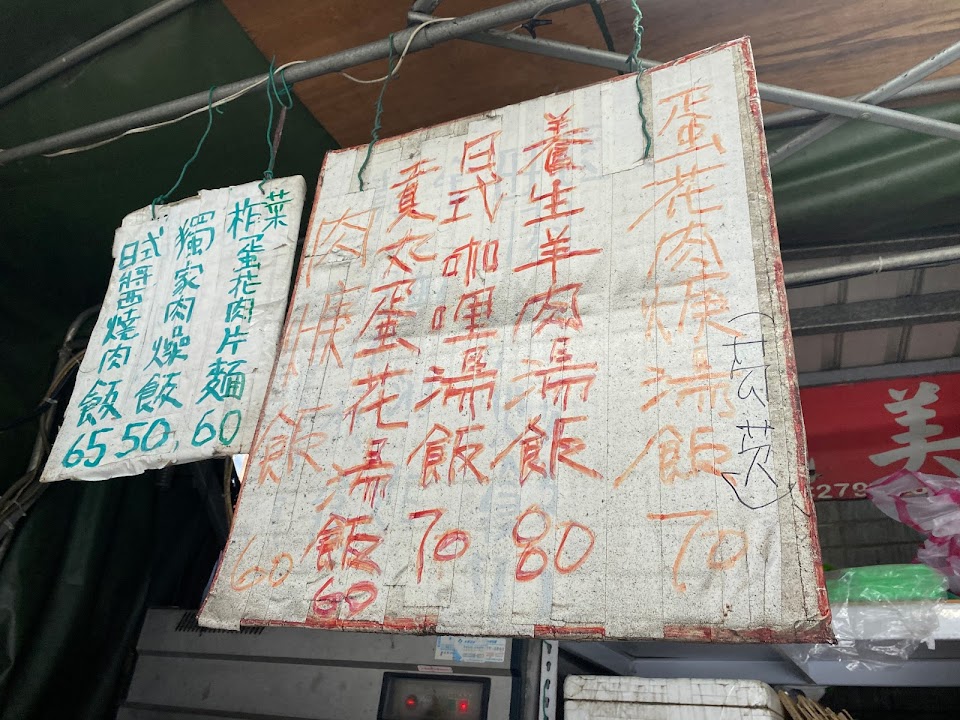 蛋花肉焿湯飯 70
養生羊肉湯飯 80
日式咖哩湯飯 70
貢丸蛋花湯飯 60
肉焿飯 60
柞菜蛋花肉片麵 60
獨家肉燥飯 50
日式醬燒肉飯 65
美
279